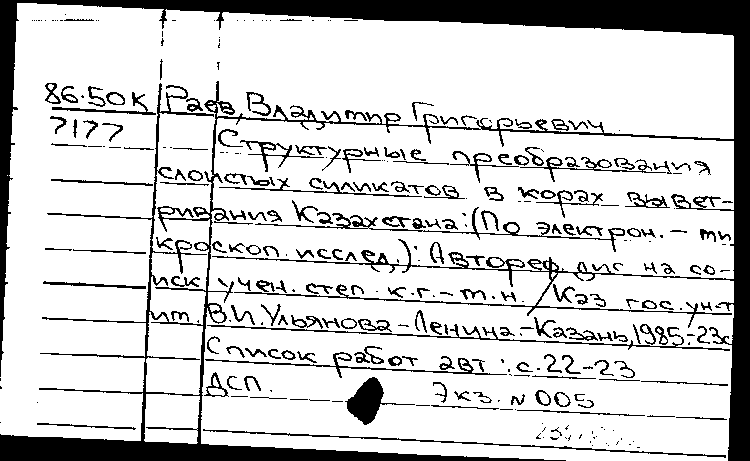 86-50К Раев, Владимир Григорьевич
7177 Структурные преобразования
слоистых силикатов в корах вывет-
ривания Казахстана: (По электрон. - ми
кроскоп. исслед.): Автореф дис на со-
иск учен. степ. к.г.-м.н. / Каз гос. ун-т
им. В.И. Ульянова-Ленина.-Казань, 1985.-23с
Список работ авт.: с. 22-23
ДСП. Экз. N 005